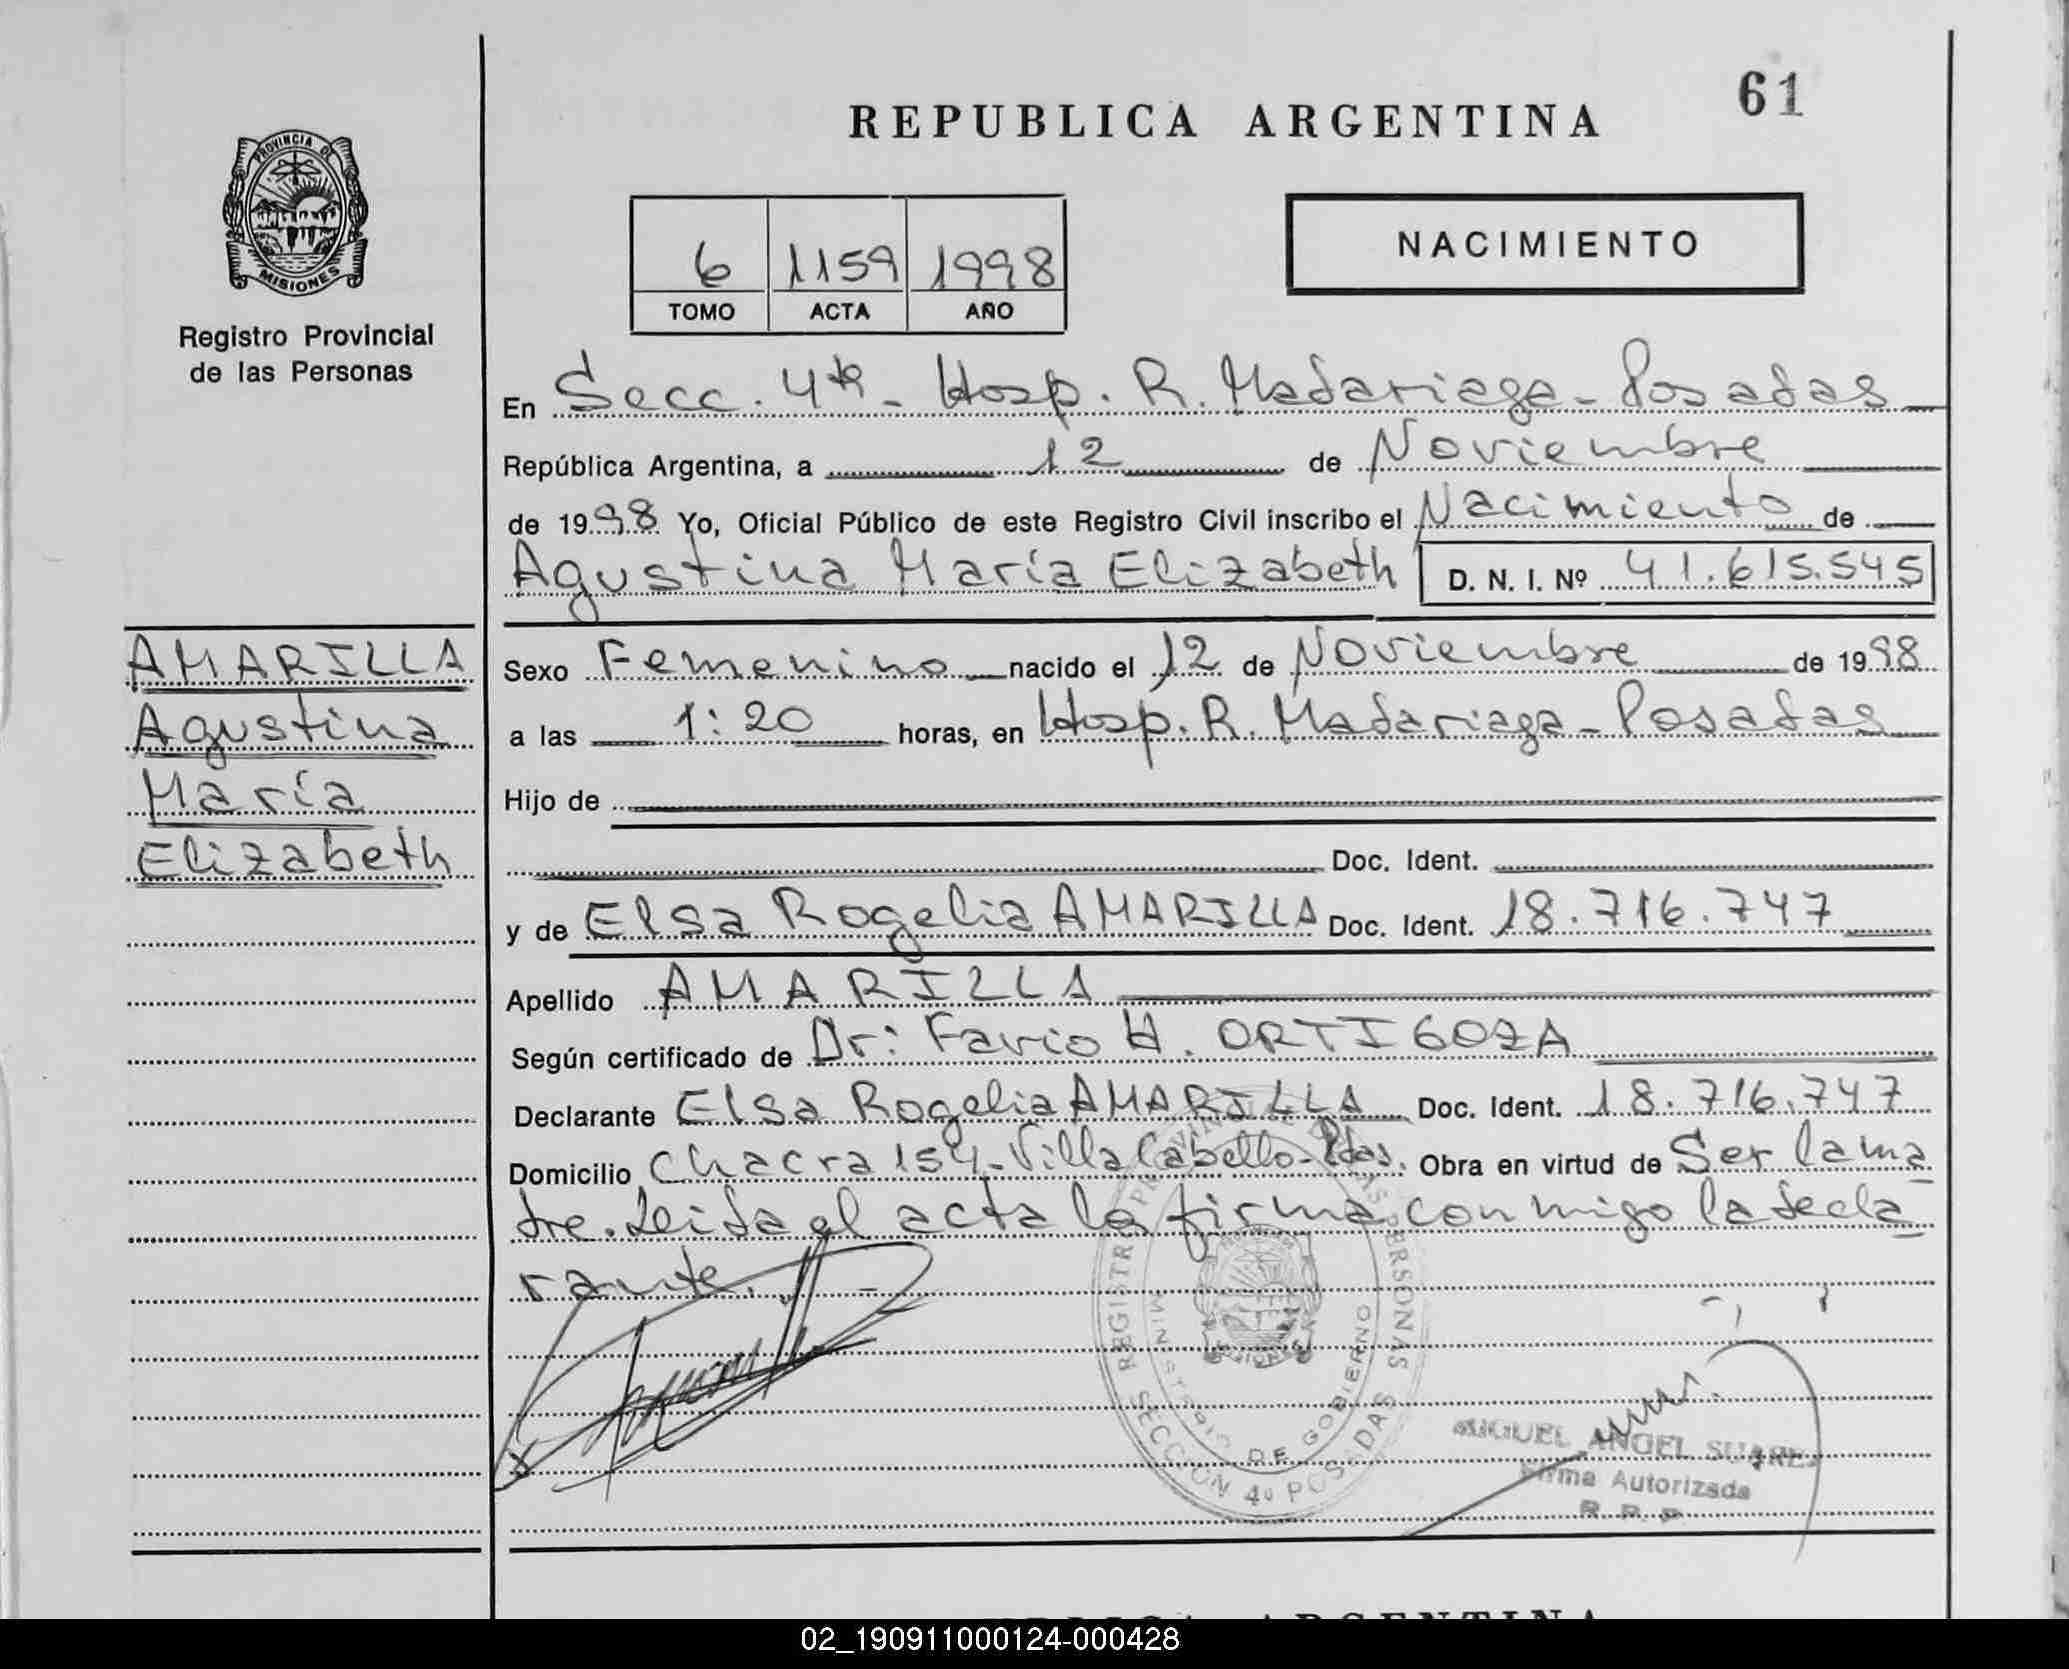 61
REPUBLICA ARGENTINA
PROVINCIA DE
MISIONES
Registro Provincial
de las Personas
6 1159 1998
TOMO ACTA AÑO
NACIMIENTO
En Secc. 4ta - Hosp. R. Madariaga - Posadas
República Argentina, a 12 de Noviembre
de 1998 Yo, Oficial Público de este Registro Civil inscribo el Nacimiento de
Agustina María Elizabeth D. N. I. Nº 41.615.545
AMARILLA
Agustina
María
Elizabeth
Sexo Femenino nacido el 12 de Noviembre de 1998
a las 1:20 horas, en Hosp. R. Madariaga - Posadas
Hijo de
Doc. Ident.
y de Elsa Rogelia AMARILLA Doc. Ident. 18.716.747
Apellido AMARILLA
Según certificado de Dr: Favio H. ORTIGOZA
Declarante Elsa Rogelia AMARILLA Doc. Ident. 18.716.747
Domicilio Chacra 154 - Villa Cabello - Pdas. Obra en virtud de Ser la ma
dre. Leida el acta la firma conmigo la decla
rante.
MINISTERIO DE GOBIERNO
SECCION 4º POSADAS
MIGUEL ANGEL SUAREZ
Firma Autorizada
R. P. P.
REPUBLICA ARGENTINA
02_190911000124-000428